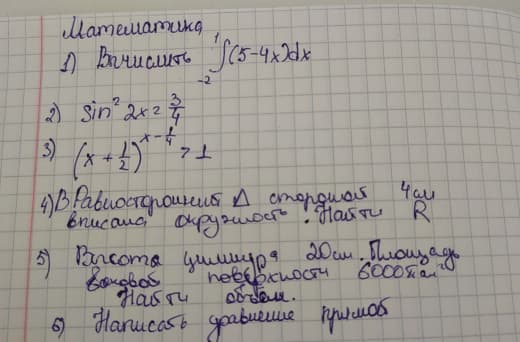 Математика
1) Вычислить ∫₋₂¹(5-4x)dx
2) sin² 2x = 3/4
3) (x + 1/2)^(x - 1/4) > 1
4) В Равносторонний Δ стороной 4 см
вписана окружность. Найти R
5) Высота цилиндра 20см. Площадь
боковой поверхности 6000π см²
Найти объём.
6) Написать уравнение прямой